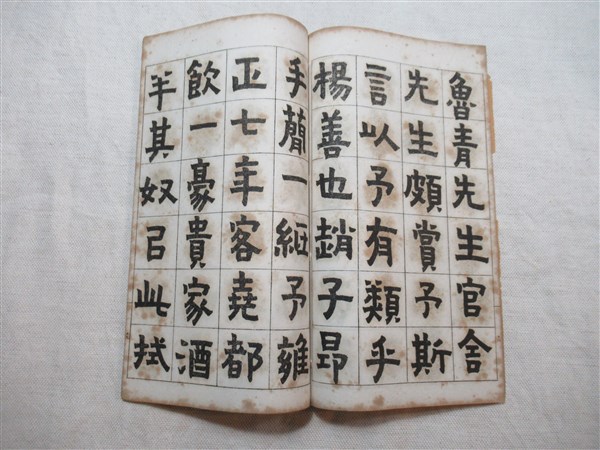 魯青先生官舍
先生頗賞予斯
言以予有類乎
楊善也趙子昂
手蕳一紙予雍
正七年客堯都
飲一豪貴家酒
半其奴㠯此拭